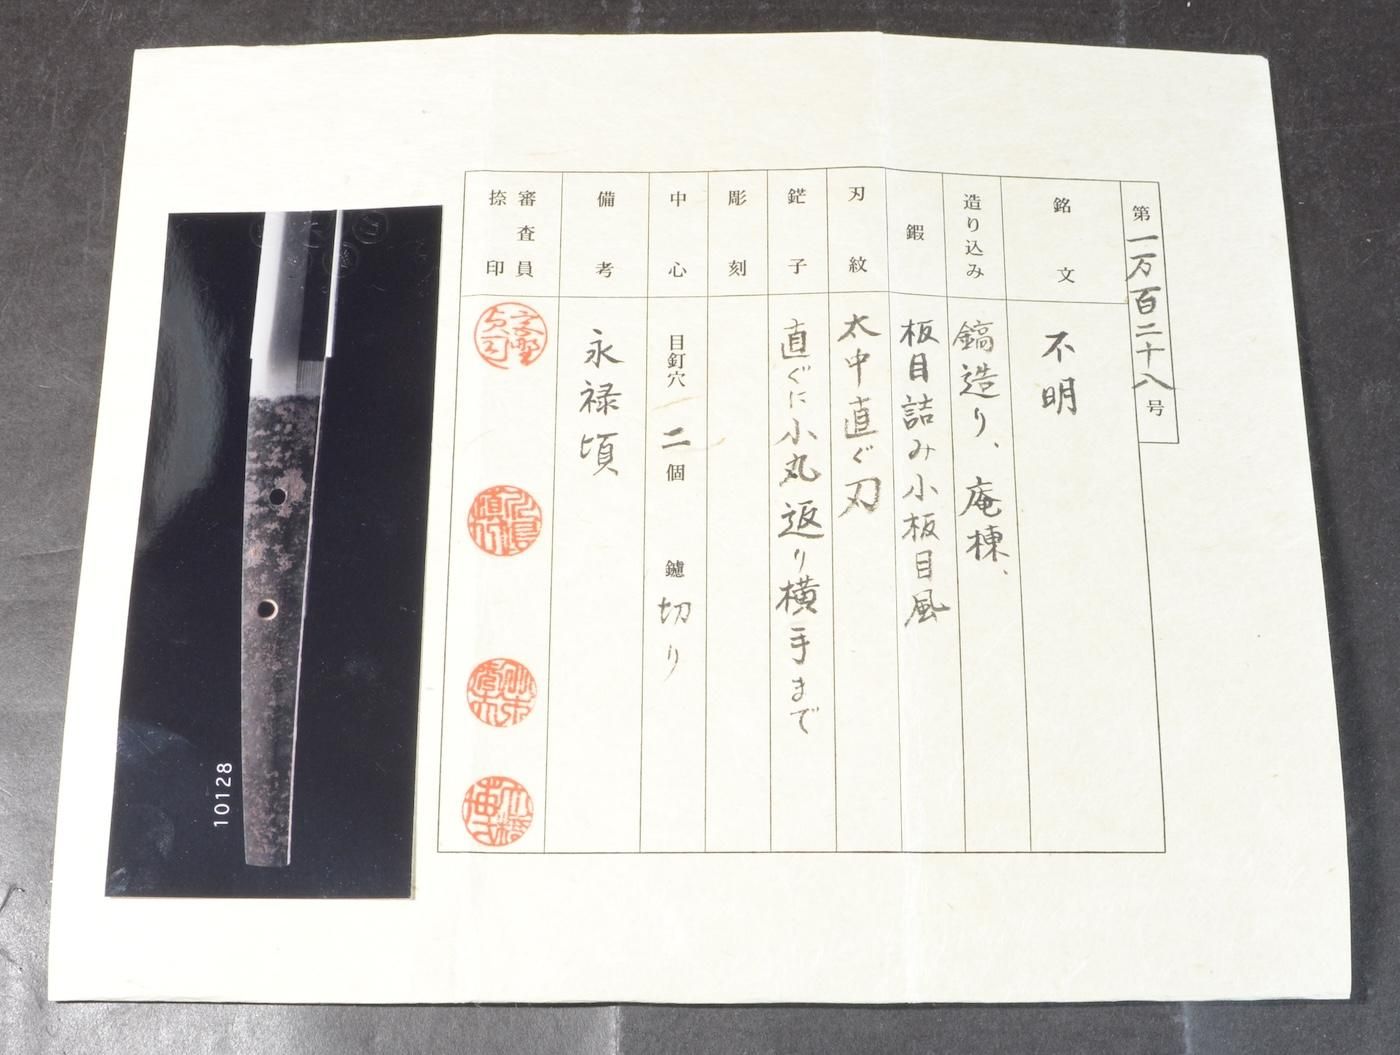 第一万百二十八号
銘文
不明
造り込み
鎬造り、庵棟、
鍜
板目詰み小板目風
刃紋
太中直ぐ刃
鋩子
直ぐに小丸返り横手まで
彫刻
中心
目釘穴 二個 鑢 切り
備考
永禄頃
審査員
捺印
10128